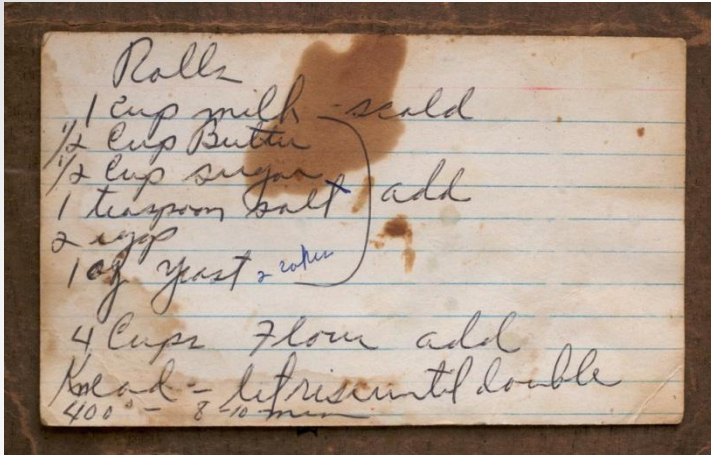 Rolls
1 cup milk - scald
1/2 Cup Butter
1/2 Cup sugar
1 teaspoon salt add
2 eggs
1 oz yeast 2 cakes
4 Cups Flour add
Knead - let rise until double
400° - 8-10 min